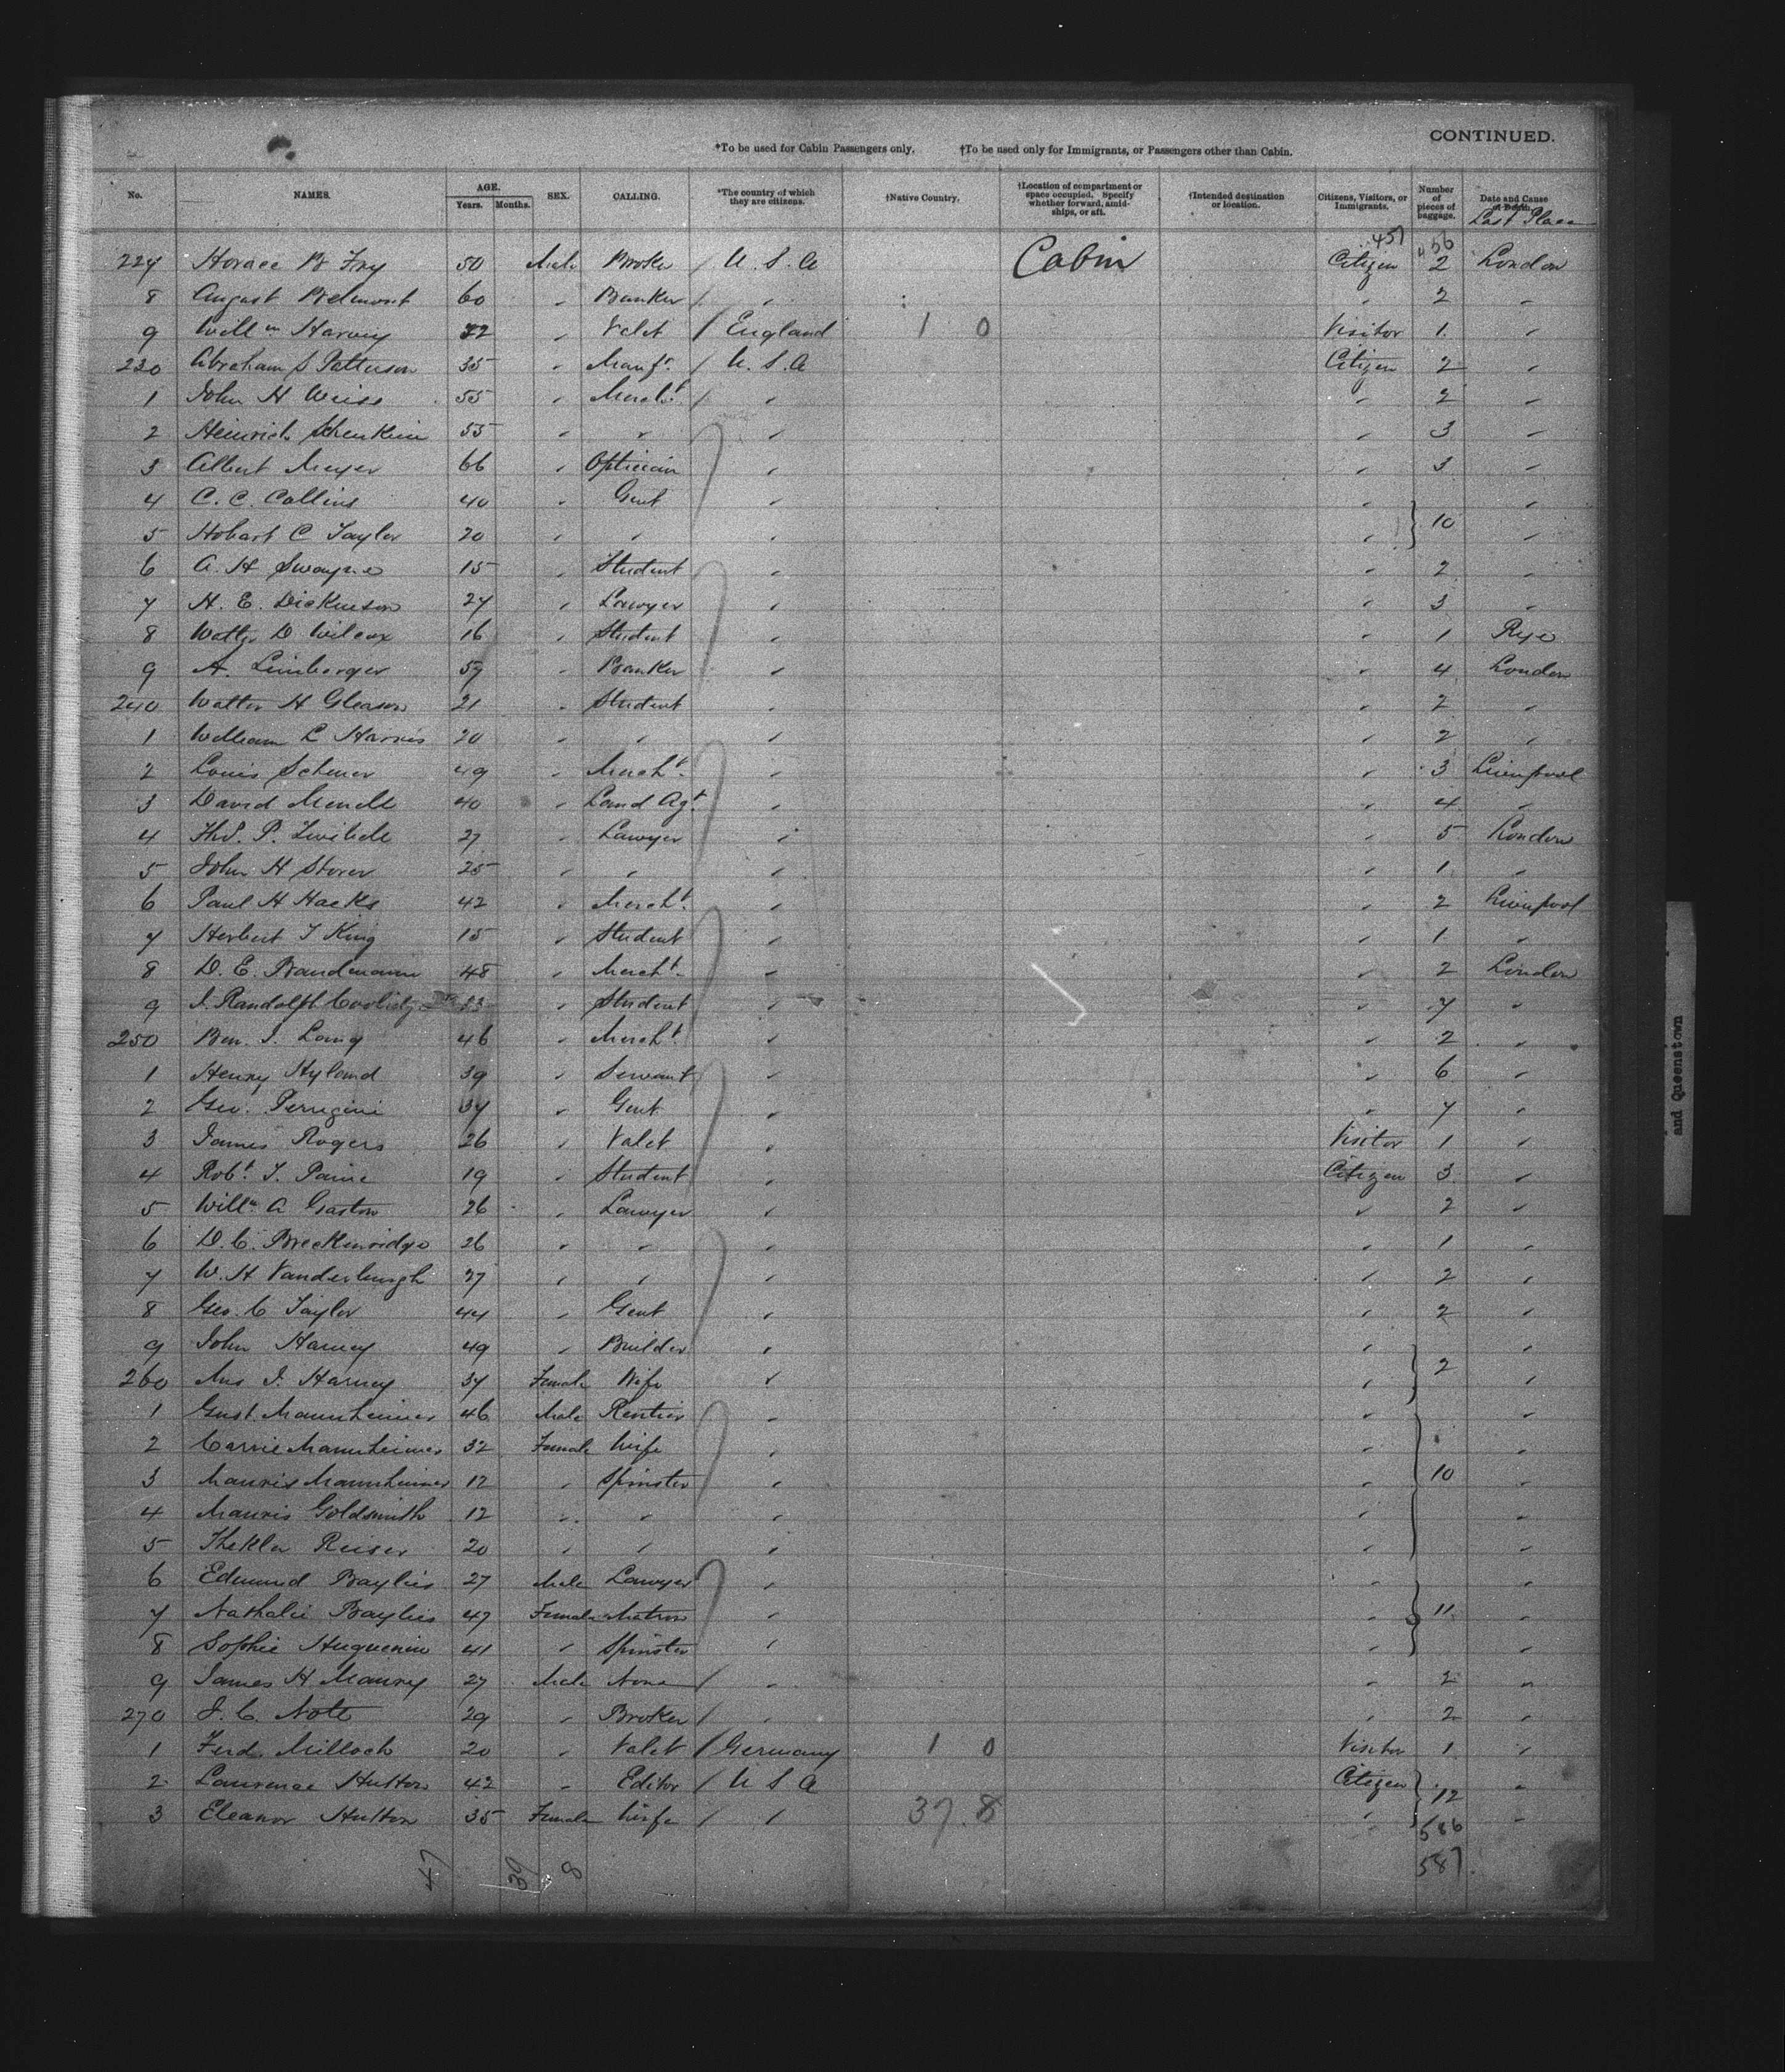 CONTINUED.
*To be used for Cabin Passengers only. †To be used only for Immigrants, or Passengers other than Cabin.
No. NAMES. AGE. Years. Months. SEX. CALLING. *The country of which they are citizens. †Native Country. †Location of compartment or space occupied. Specify whether forward, amidships, or aft. †Intended destination or location. Citizens, Visitors, or Immigrants. Number of pieces of baggage. Date and Cause of Death. Last Place
457 456
227 Horace B Fry 50 Male Broker / U. S. A Cabin Citizen 2 London
8 August Belmont 60 " Banker / " " 2 "
9 Willm Harvey 32 " Valet / England 1 0 Visitor 1 "
230 Abraham S Patterson 35 " Manfr. / U. S. A Citizen 2 "
1 John H Weiss 55 " Mercht. / " " 2 "
2 Heinrich 55 " " " " 3 "
3 Albert Meyer 66 " Optician " " 3 "
4 C. C. Collins 40 " Gent " " "
10
5 Hobart C Taylor 20 " " " " "
6 A. H Swayne 15 " Student " " 2 "
7 H. E. Dickinson 27 " Lawyer " " 3 "
8 Walter D Wilcox 16 " Student " " 1 Rye
9 A. Limberger 59 " Banker " " 4 London
240 Walter H Gleason 21 " Student " " 2 "
1 William L Harris 20 " " " " 2 "
2 Louis Scheuer 49 " Mercht. " " 3 Liverpool
3 David 40 " Land Agt. " " 4 "
4 Thd. P. 27 " Lawyer " " 5 London
5 John H Storer 25 " " " " 1 "
6 Paul H Hacks 42 " Mercht. " " 2 Liverpool
7 Herbert T King 15 " Student " " 1 "
8 D. E. Bandmann 48 " Mercht. " " 2 London
9 J. Randolph Coolidge Jr " Student " " 7 "
250 Ben. J. Lang 46 " Mercht. " " 2 "
1 Henry Hyland 39 " Servant " " 6 "
2 Geo. Perrigini 37 " Gent " " 7 "
3 James Rogers 26 " Valet " Visitor 1 "
4 Robt. T. Paine 19 " Student " Citizen 3 "
5 Willm A Gaston 26 " Lawyer " " 2 "
6 D. C. Breckinridge 26 " " " " 1 "
7 W. H Vanderburgh 27 " " " " 2 "
8 Geo. C Taylor 44 " Gent " " 2 "
9 John Harvey 49 " Builder " " "
2
260 Mrs J. Harvey 37 Female Wife " " "
1 Gust. Mannheimer 46 Male Rentier " " "
2 Carrie Mannheimer 32 Female Wife " " "
3 Mannheimer 12 " Spinster " " 10 "
4 Goldsmith 12 " " " " "
5 Thekla Reiser 20 " " " " "
6 Edmund Baylies 27 Male Lawyer " " "
7 Nathalie Baylies 47 Female Matron " " 11 "
8 Sophie Huguenin 41 " Spinster " " "
9 James H Maury 27 Male None / " 2 "
270 J. C. Nott 29 " Broker / " " 2 "
1 Ferd. Milloch 20 " Valet / Germany 1 0 Visitor 1 "
2 Laurence Hutton 42 " Editor / U S A Citizen 12 "
3 Eleanor Hutton 35 Female Wife / " 37 8 " "
586
587
47 39 8
and Queenstown